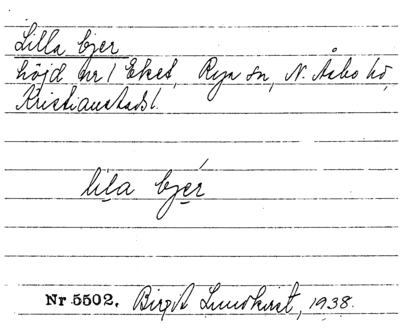 Lilla bjer
höjd nr 1 Eket, Rya sn, N. Åsbo hd,
Kristianstads l.
lila bjér
Nr 5502. Birgit Lundkvist, 1938.